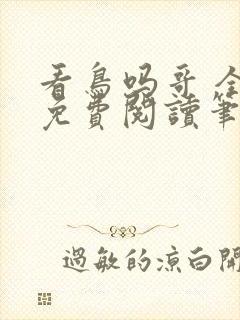 看鳥嗎哥全
免費閱讀筆
過敏的涼白開